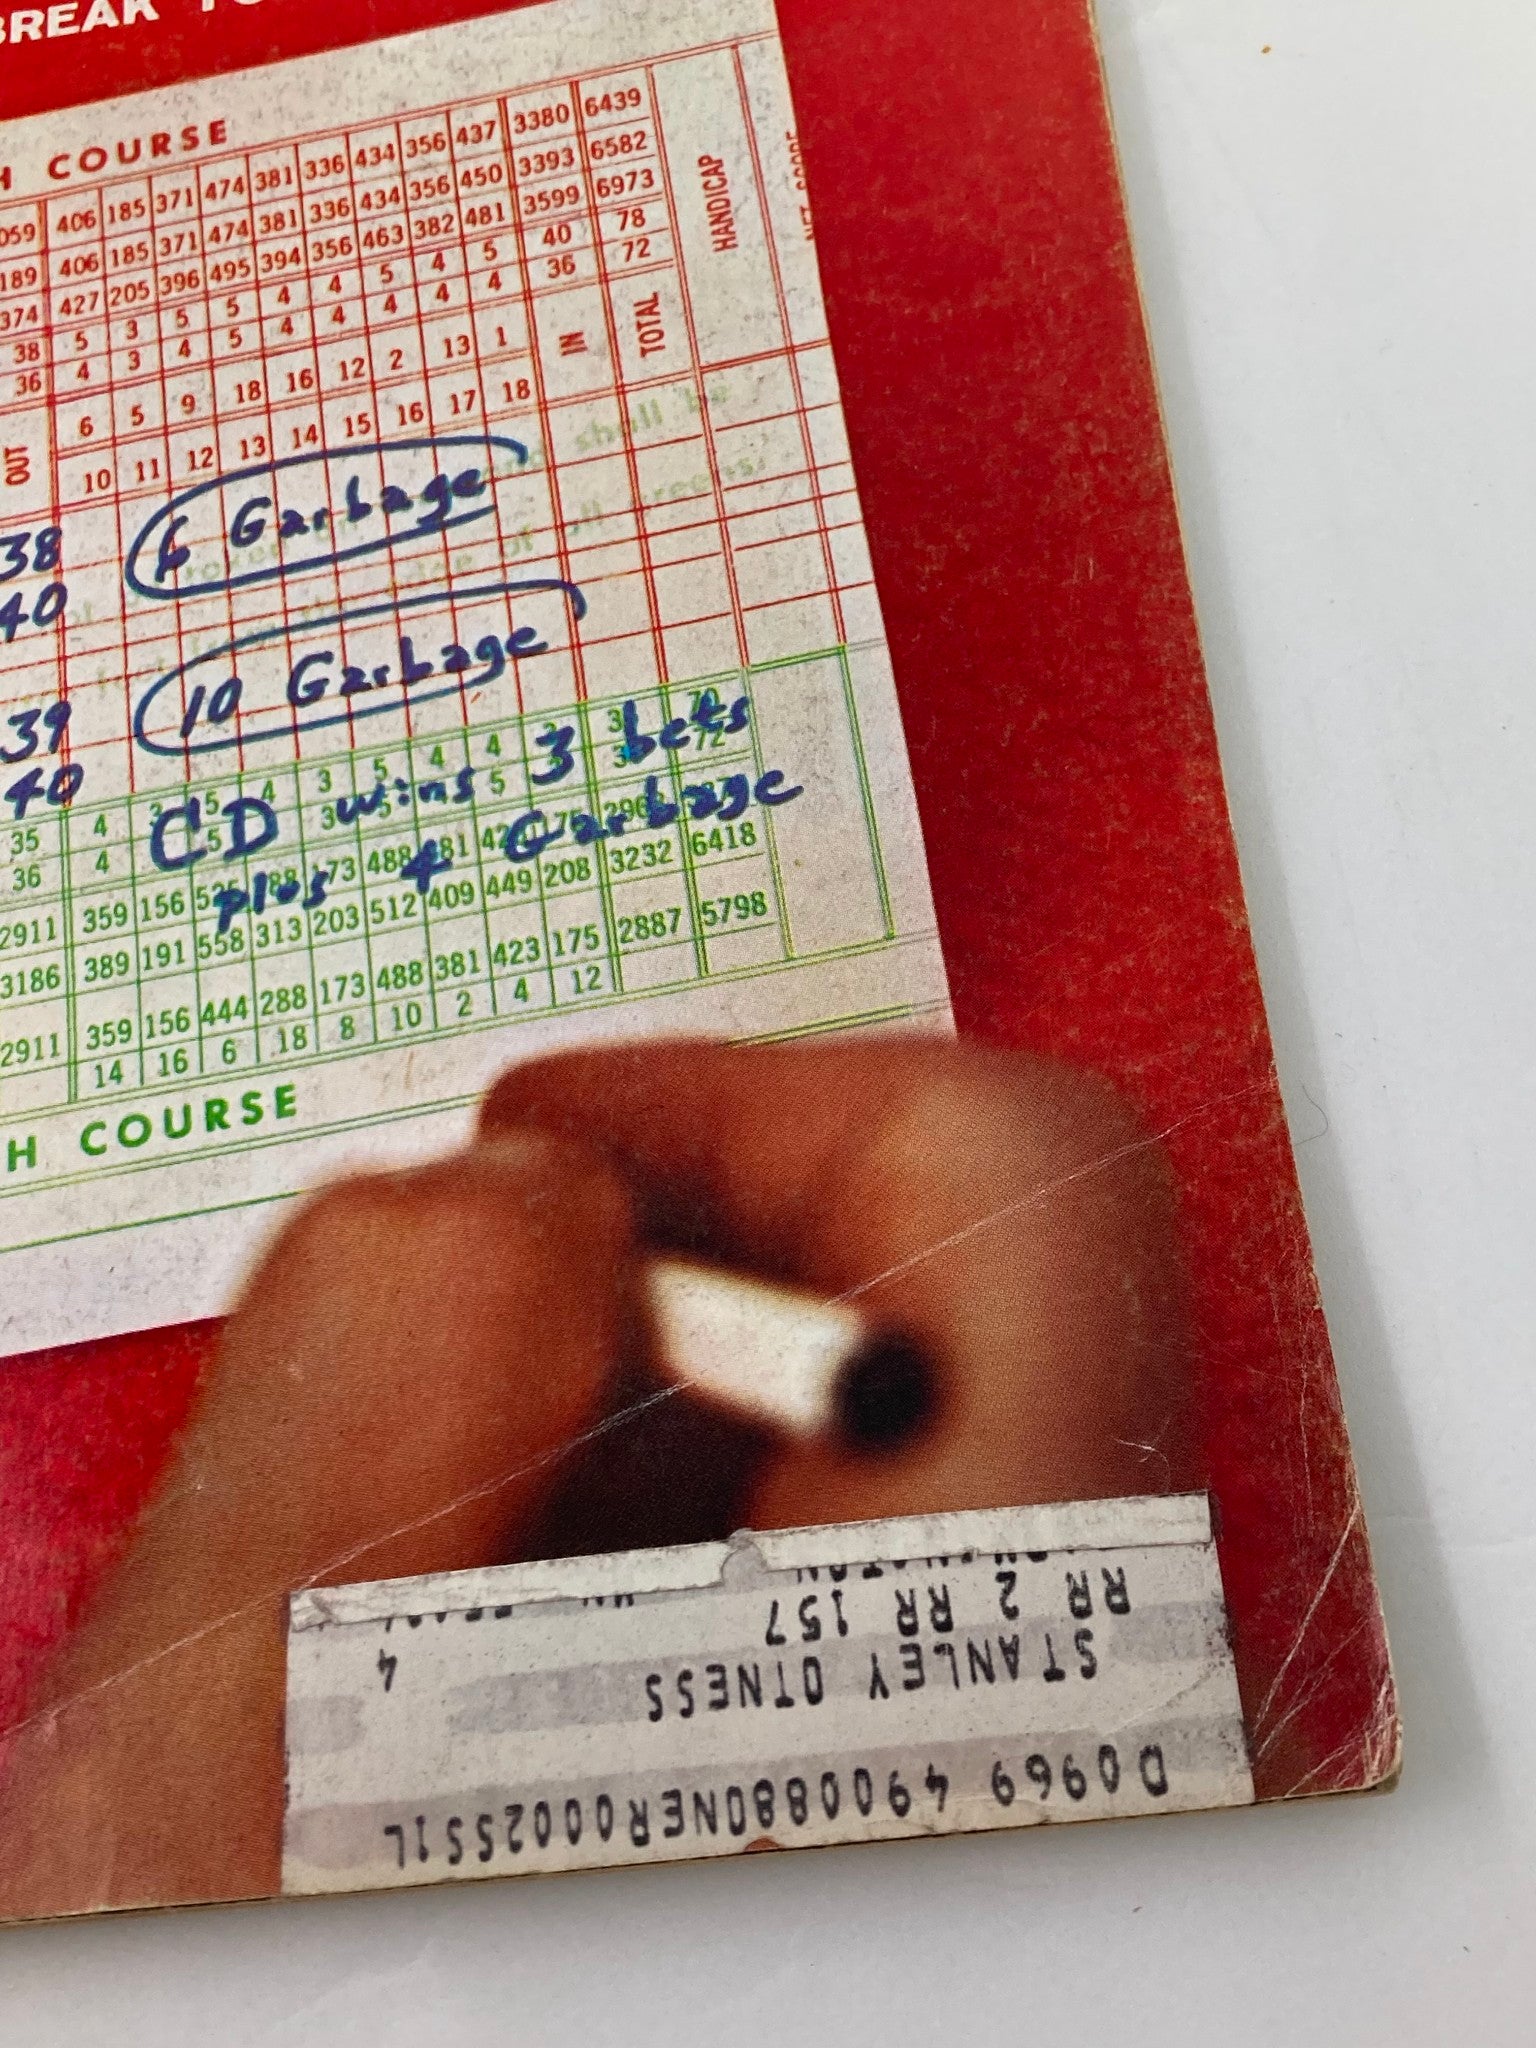 BREAK
H COURSE
059 406 185 371 474 381 336 434 356 437 3380 6439
189 406 185 371 474 381 336 434 356 450 3393 6582
374 427 205 396 495 394 356 463 382 481 3599 6973
38 5 3 5 5 4 4 5 4 5 40 78
36 4 3 4 5 4 4 4 4 4 36 72
OUT 6 5 9 18 16 12 2 13 1 IN TOTAL HANDICAP NET SCORE
10 11 12 13 14 15 16 17 18
shall be
38 6 Garbage
40
39 10 Garbage
40
CD wins 3 bets
plus 4 Garbage
35 4 3 5 4 3 5 4 4 3 70
36 4 5 3 5 5 72
2911 359 156 173 488 381
3186 389 191 558 313 203 512 409 449 208 3232 6418
2911 359 156 444 288 173 488 381 423 175 2887 5798
14 16 6 18 8 10 2 4 12
H COURSE
D0969 490088ONER0002551L
STANLEY OTNESS 4
RR 2 RR 157